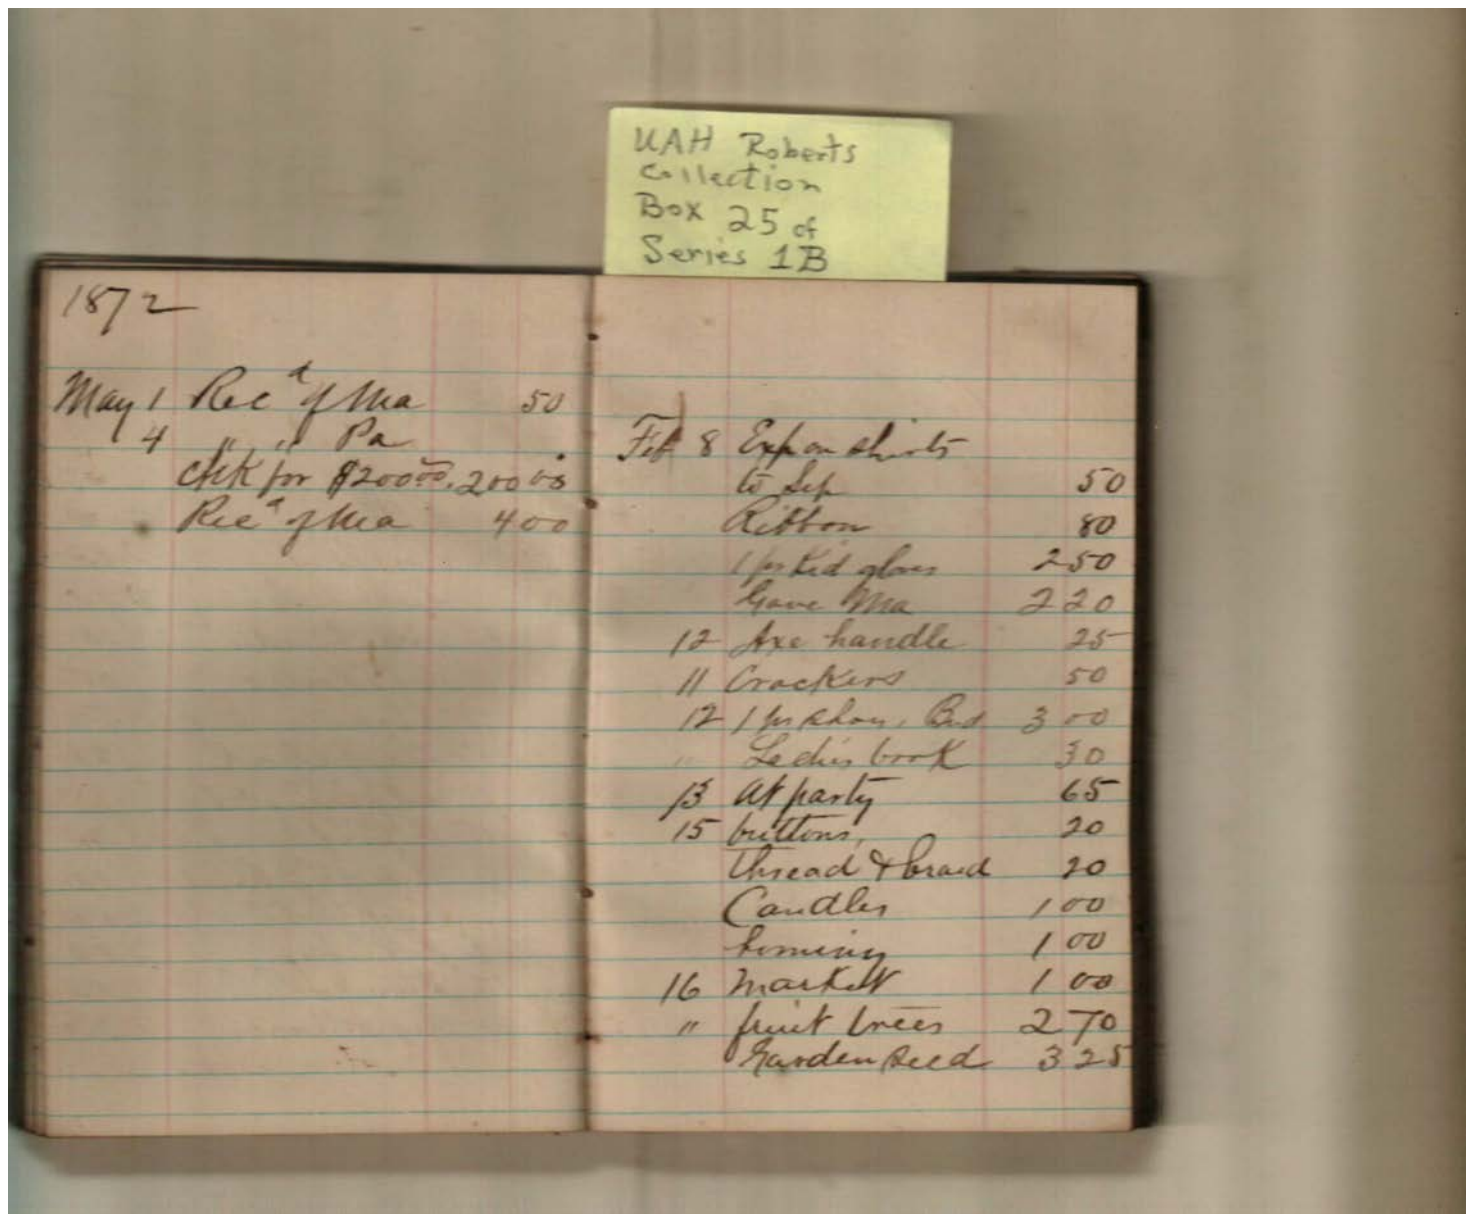 UAH Roberts
Collection
Box 25 of
Series 1B
1872
May 1 Recd of Ma 50
4 " " Pa
chk for $200 00. 200 00
Recd of Ma 4 00
Feb 8 Exp on shirts
to Sep 50
Ribbon 80
1 pr Kid gloves 2 50
Gave Ma 2 20
12 Axe handle 25
11 Crackers 50
12 1 pr shoes, Bud 3 00
" book 30
13 At party 65
15 buttons, 20
thread & braid 20
Candles 1 00
hominy 1 00
16 Market 1 00
" fruit trees 2 70
Garden seed 3 25